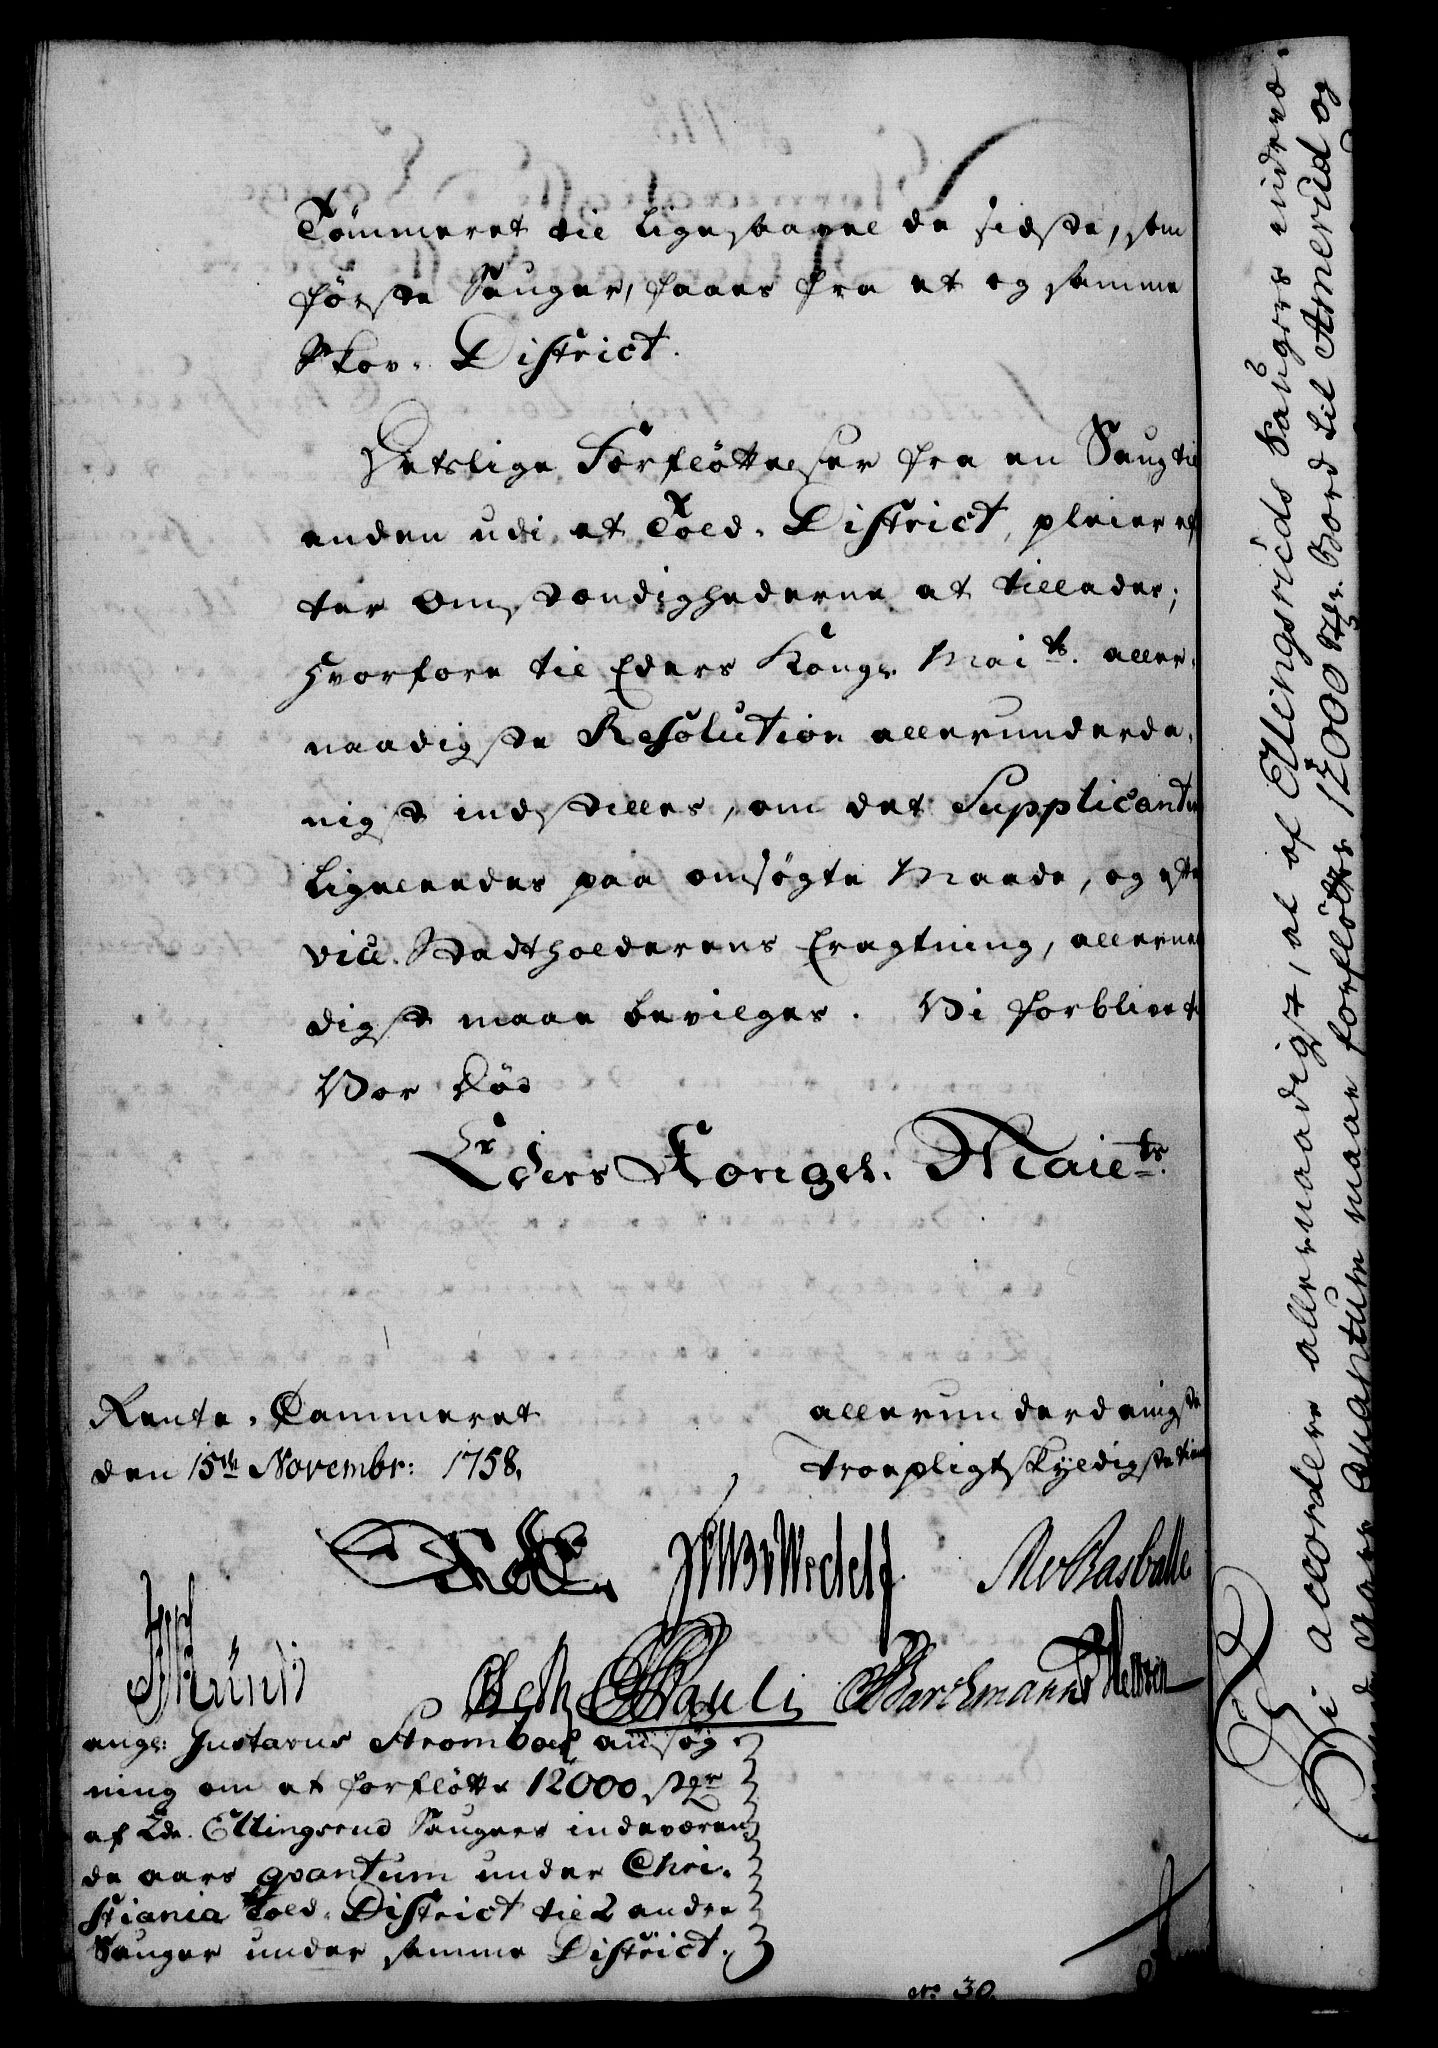 Tömmeret til ligesaavel de sidste, som
förste Sauger, faaes fra et og samme
Skov-District.
Detslige Forflöttelser fra en Saug til
anden udi et Told-District, pleier ef
ter Omstændighederne at tillades;
hvorfore til Eders Kongl. Mai ts. aller-
naadigste Resolution allerunderda-
nigst indstilles, om det Supplicantn
ligeledes paa omsögte Maade, og efte
vice-Stadtholderens Eragtning, allernaa
digst maae bevilges. Vi forblive t
Vor Död
Eders Kongel. Maie ts.
Rente-Cammeret
den 15de Novembr: 1758.
allerunderdanigste
troepligtskyldigste tien
Wedels
Rasballe
Pauli
Barthmann
ang: Gustavus Stromboes ansög
ning om at forflötte 12000 st
af Ellingsrud Sauger indeværen
de aars qvantum under Chri-
stiania Told-District til 2 andre
Sauger under samme District.
No. 30.
Vi accordere allernaadigst, at af Ellingsriids Saugers indevæ-
rende Aars Quantum maae forflöttes 12000 st. Bord til Amerud og